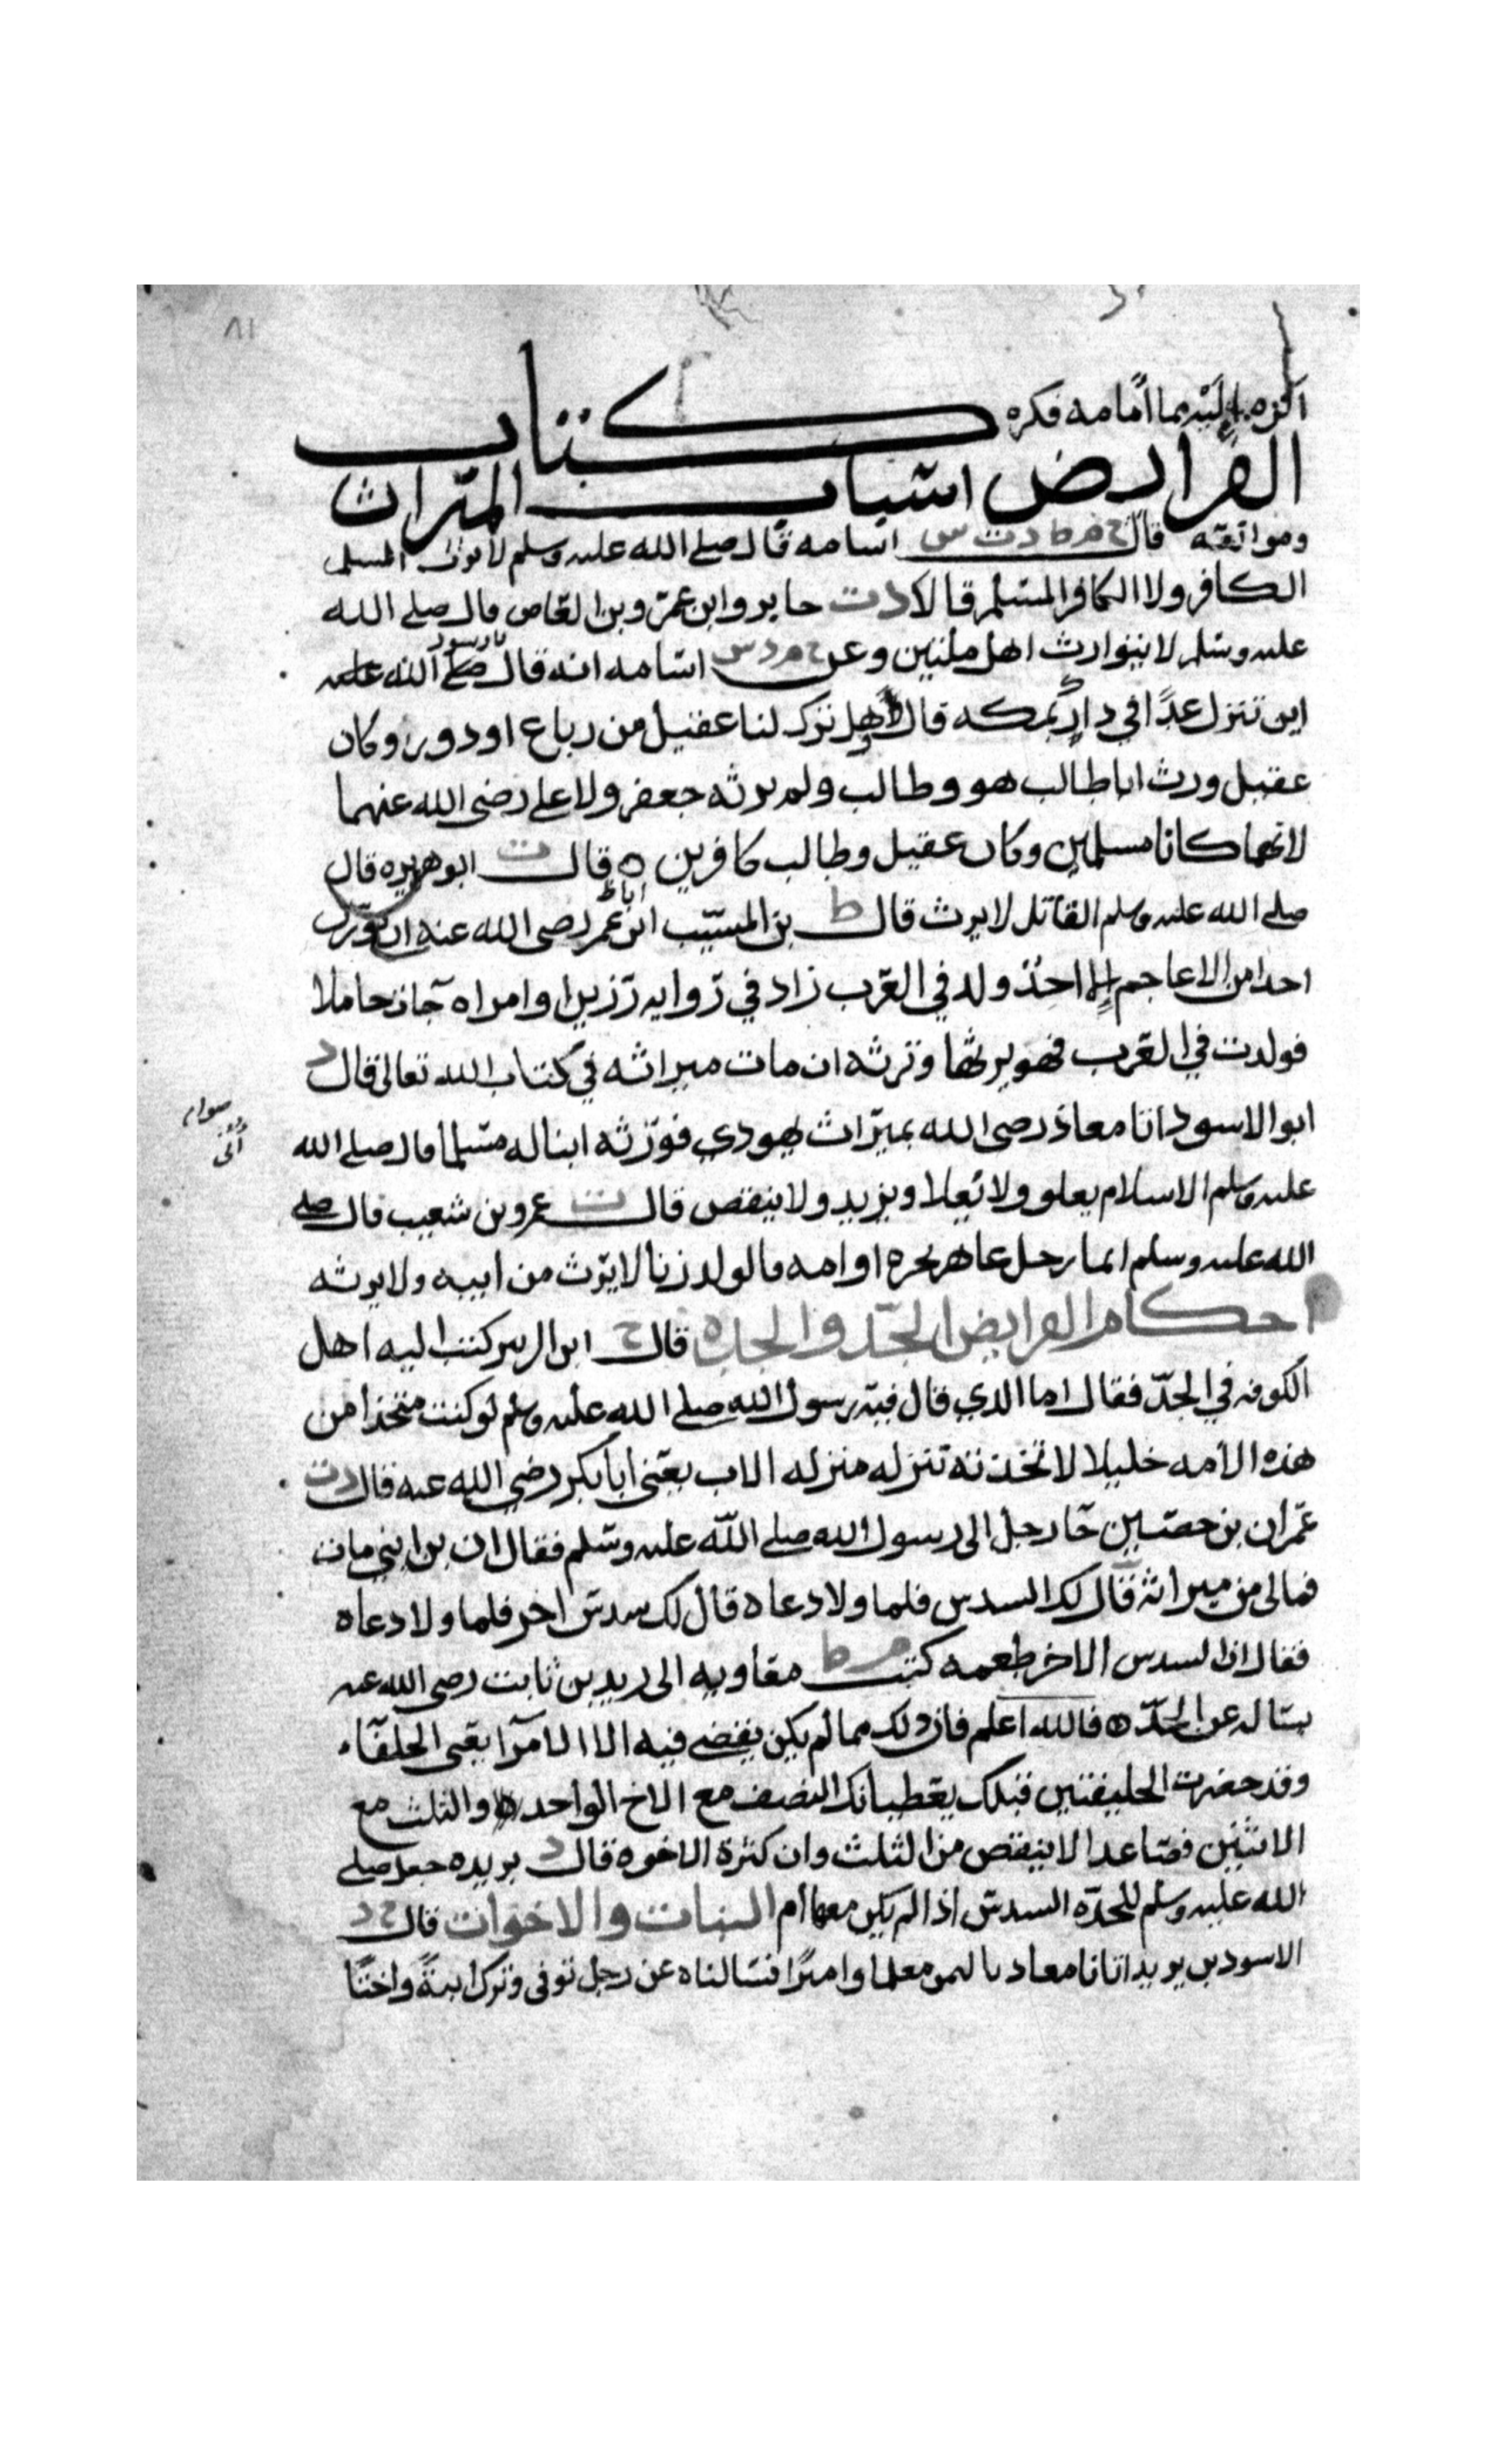 ٨١
اليهما امامه فكره كتاب
الفرايض اسباب الميراث
وموانعه قال خ م ط د ت س اسامه قال صلى الله عليه وسلم لا يرث المسلم
الكافر ولا الكافر المسلم قالا د ت جابر وابن عمر وبن العاص قال صلى الله
عليه وسلم لا يتوارث اهل ملتين وعن خ م د س اسامه انه قال يا رسول الله
اين تنزل غدا في دارك بمكه قال وهل ترك لنا عقيل من رباع او دور وكان
عقيل ورث ابا طالب هو وطالب ولم يرثه جعفر ولا علي رضى الله عنهما
لانهما كانا مسلمين وكان عقيل وطالب كافرين ه قال ت ابو هريره قال
صلى الله عليه وسلم القاتل لا يرث قال ط بن المسيب ابى عمر رضى الله عنه ان يورث
احدا من الاعاجم الا احد ولد في العرب زاد في روايه رزين او امراه جات حاملا
فولدت في العرب فهو يرثها وترثه ان مات ميراثه في كتاب الله تعالى قال د
ابو الاسود اتا معاذ رضى الله بميراث يهودي فورثه ابنا له مسلما قال صلى الله
سوابه
أُتى
عليه وسلم الاسلام يعلو ولا يعلا ويزيد ولا ينقص قال ت عمرو بن شعيب قال صلى
الله عليه وسلم ايما رجل عاهر بحره او امه فالولد زنا لا يرث من ابيه ولا يرثه
احكام الفرايض الجد والجده قال خ ابن الزبير كتب اليه اهل
الكوفه في الجد فقال اما الذي قال فيه رسول الله صلى الله عليه وسلم لو كنت متخذا من
هذه الامه خليلا لاتخذته تنزله منزله الاب يعني ابا بكر رضي الله عنه قال د ت
عمران بن حصين جا رجل الى رسول الله صلى الله عليه وسلم فقال ان بن ابني مات
فمالى من ميراثه قال لك السدس فلما ولا دعاه قال لك سدس اخر فلما ولا دعاه
فقال ان السدس الاخر طعمه كتب م ط معاويه الى زيد بن ثابت رضى الله عنه
يساله عن الجد ه فالله اعلم فان ذلك مما لم يكن يقضى فيه الا الامرا يعنى الخلفاء
وقد حضرت الخليفتين قبلك يعطيانك النصف مع الاخ الواحد والثلث مع
الاثنين فصاعدا لا ينقص من الثلث وان كثرة الاخوه قال د بريده جعل صلى
الله عليه وسلم للجده السدس اذا لم يكن معها أم البنات والاخوات قال خ د
الاسود بن يزيد اتانا معاذ باليمن معلما واميرا فسالناه عن رجل توفى وترك ابنة واختا